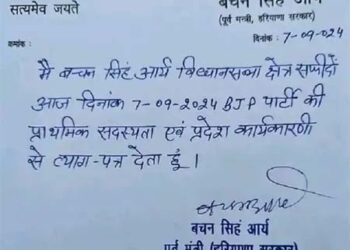 सत्यमेव जयते
बचन सिंह आर्य
(पूर्व मन्त्री, हरियाणा सरकार)
क्रमांक :
दिनांक : 7-09-024
मैं बच्चन सिंह आर्य विधानसभा क्षेत्र सफीदों
आज दिनांक 7-09-2024 BJP पार्टी की
प्राथमिक सदस्यता एवं प्रदेश कार्यकारणी
से त्याग-पत्र देता हूं।
बचन सिंह आर्य
पूर्व मंत्री (हरियाणा सरकार)